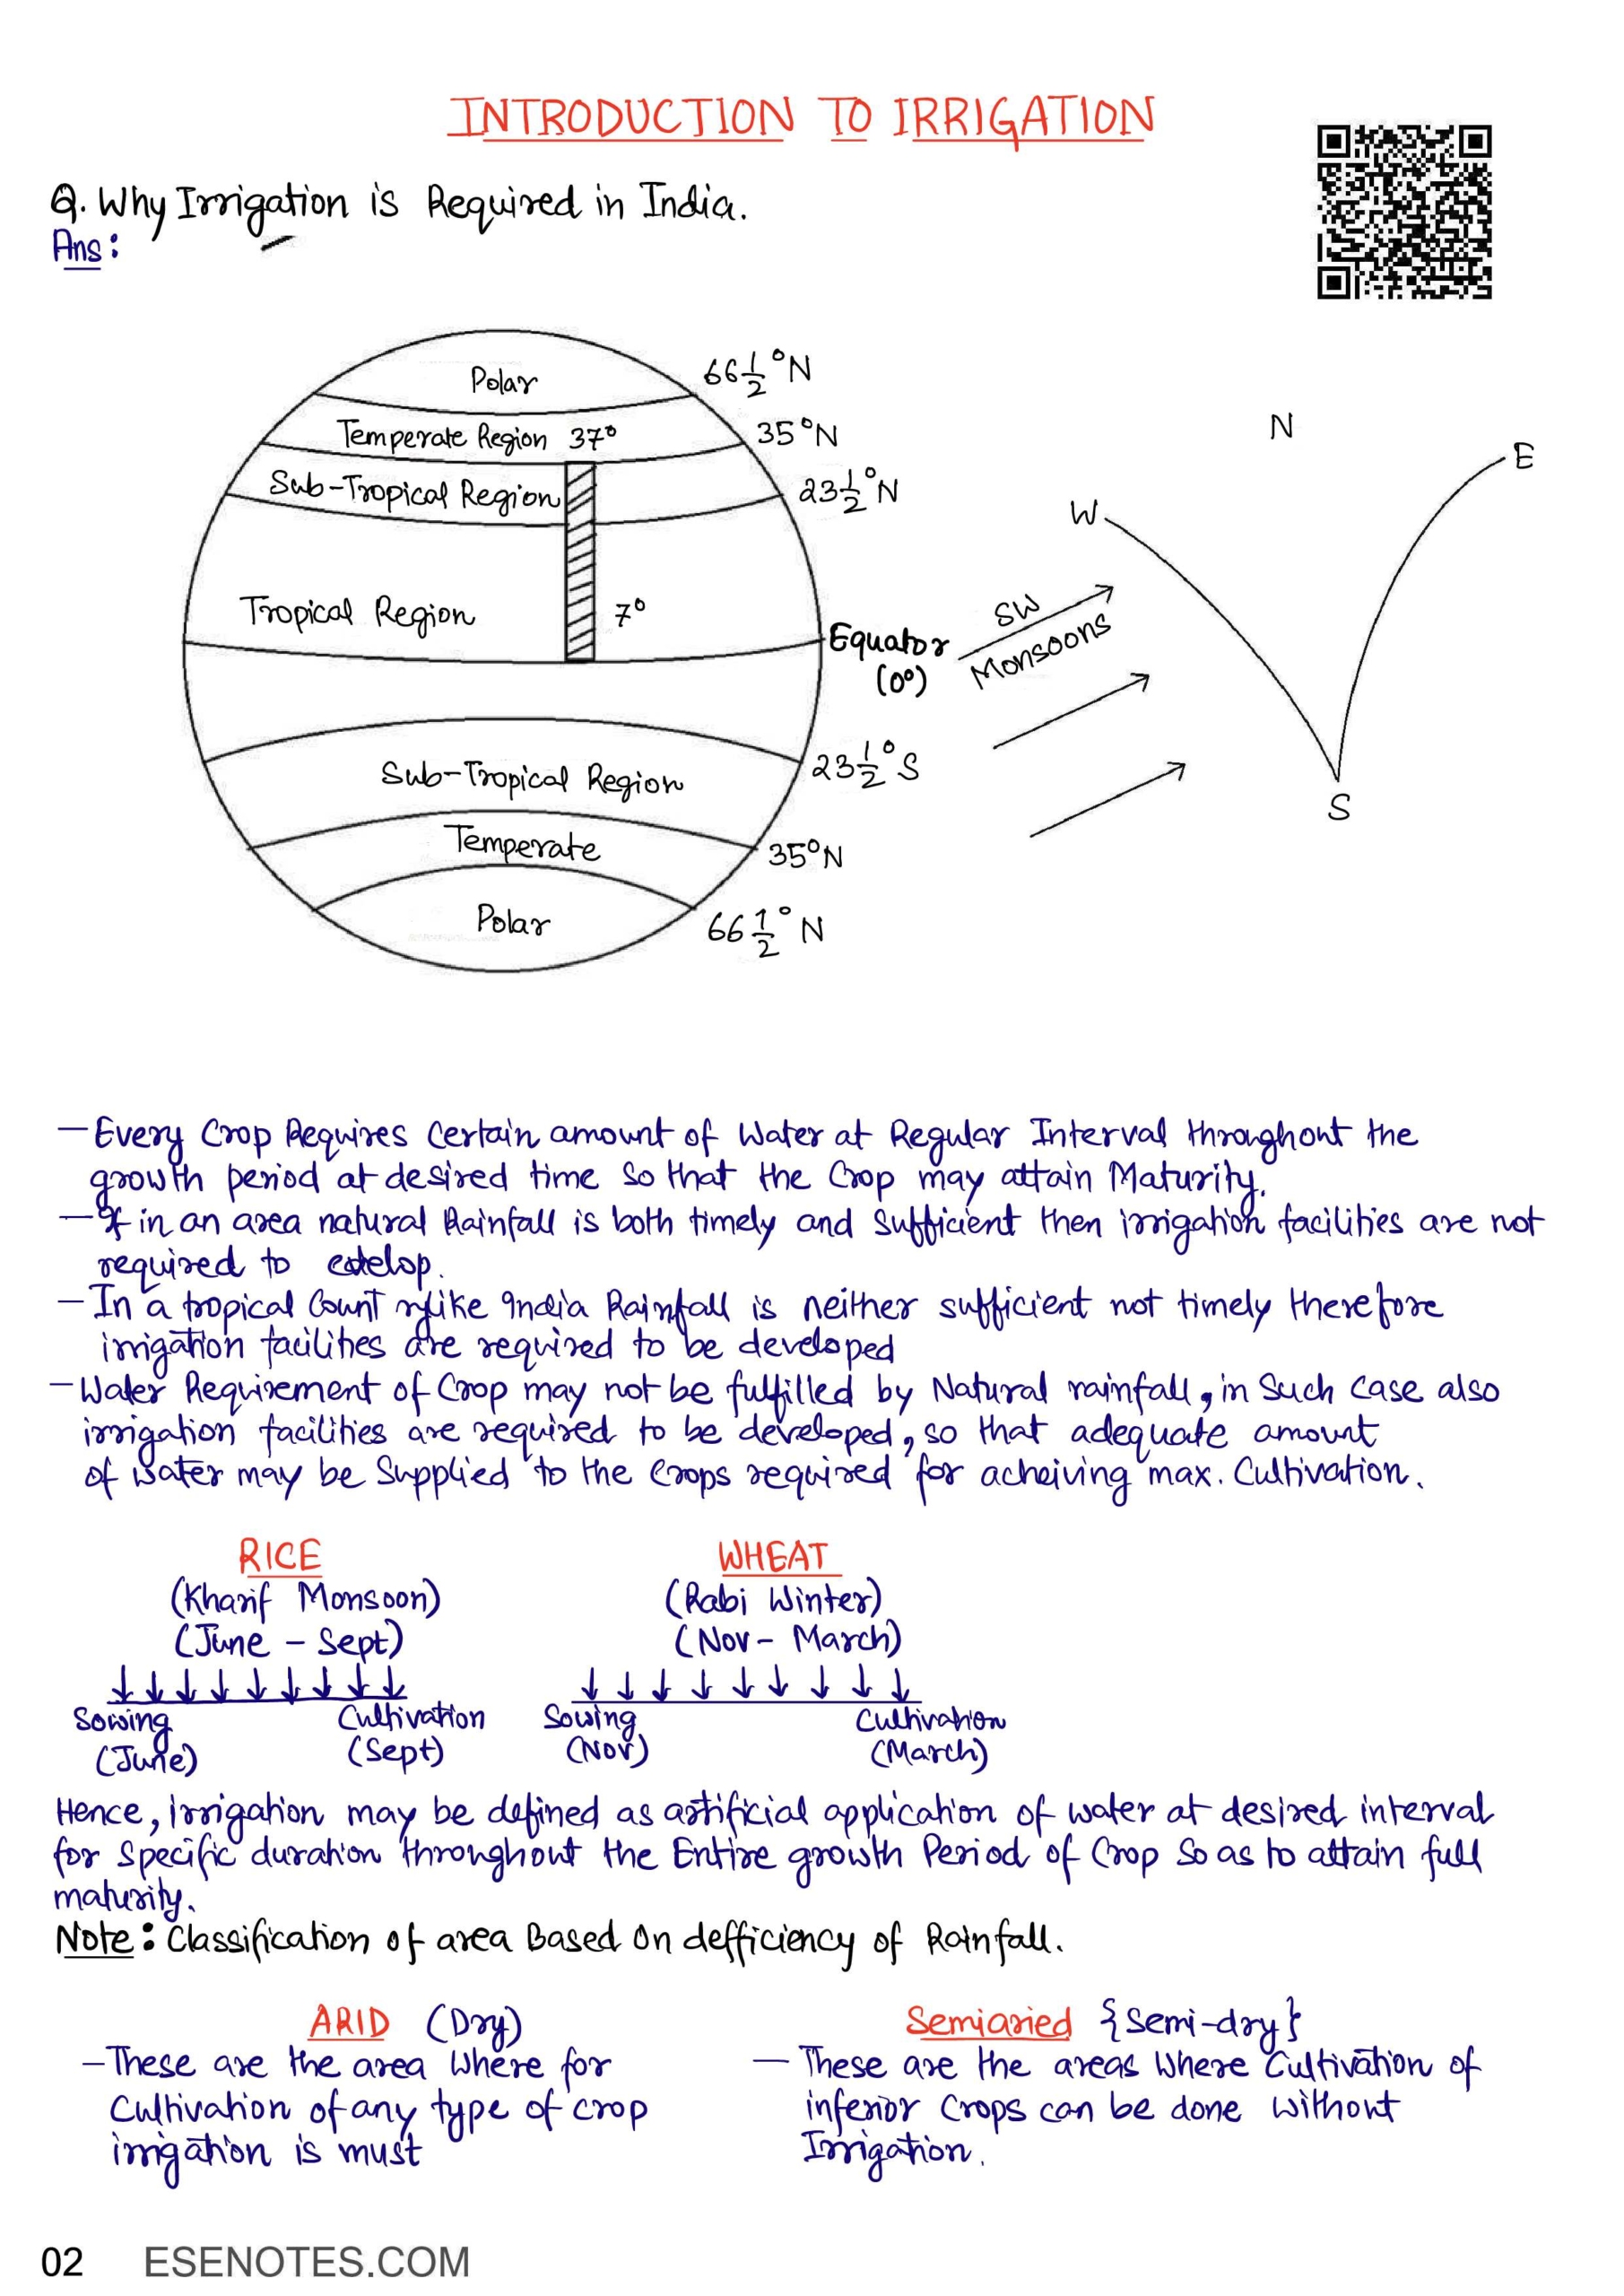 INTRODUCTION TO IRRIGATION
Q. Why Irrigation is Required in India.
Ans :
Polar
66 1/2 °N
Temperate Region 37°
35°N
Sub-Tropical Region
23 1/2 °N
Tropical Region
7°
Equator
(0°)
Sub-Tropical Region
23 1/2 °S
Temperate
35°N
Polar
66 1/2 °N
N
E
W
SW
Monsoons
S
– Every Crop Requires Certain amount of Water at Regular Interval throughout the
growth period at desired time so that the Crop may attain Maturity.
– If in an area natural Rainfall is both timely and Sufficient then irrigation facilities are not
required to
– In a tropical Count rylike India Rainfall is neither sufficient not timely therefore
irrigation facilities are required to be developed
– Water Requirement of Crop may not be fulfilled by Natural rainfall, in Such case also
irrigation facilities are required to be developed, so that adequate amount
of water may be Supplied to the Crops required for acheiving max. Cultivation.
RICE
(Kharif Monsoon)
(June – Sept)
Sowing
(June)
Cultivation
(Sept)
WHEAT
(Rabi Winter)
(Nov – March)
Sowing
(Nov)
Cultivation
(March)
Hence, irrigation may be defined as artificial application of water at desired interval
for Specific duration throughout the Entire growth Period of Crop So as to attain full
maturity.
Note : Classification of area Based On defficiency of Rainfall.
ARID (Dry)
– These are the area Where for
Cultivation of any type of crop
irrigation is must
Semiaried {Semi-dry}
– These are the areas Where Cultivation of
inferior Crops can be done Without
Irrigation.
02 ESENOTES.COM